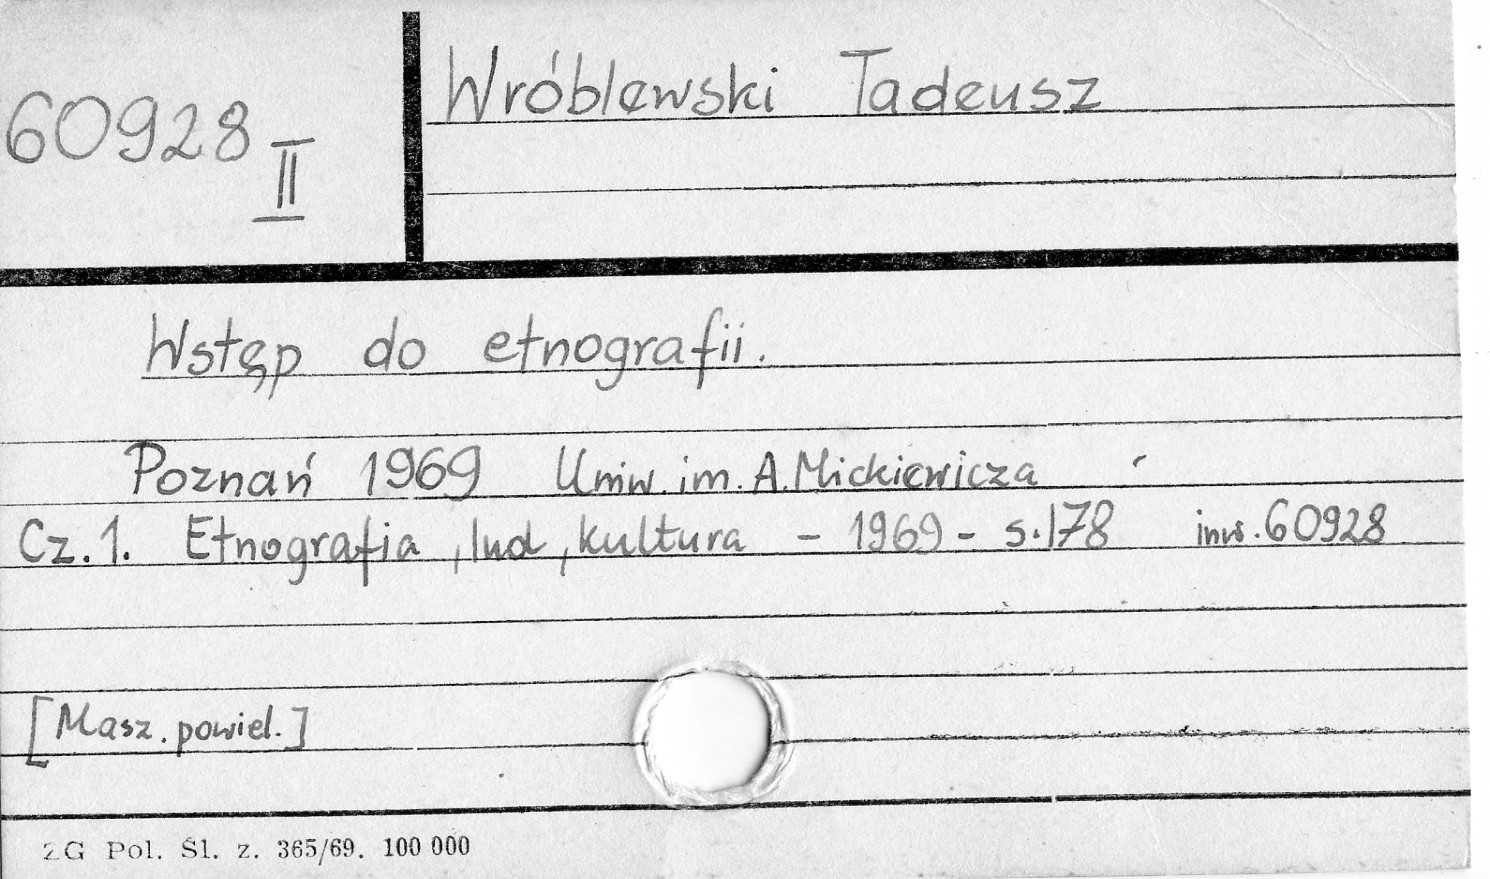 60928 II
Wróblewski Tadeusz
Wstęp do etnografii.
Poznań 1969 Uniw. im. A. Mickiewicza
Cz. 1. Etnografia, lud, kultura - 1969 - s. 178 inw. 60928
[Masz. powiel.]
ZG Pol. Śl. z. 365/69. 100 000